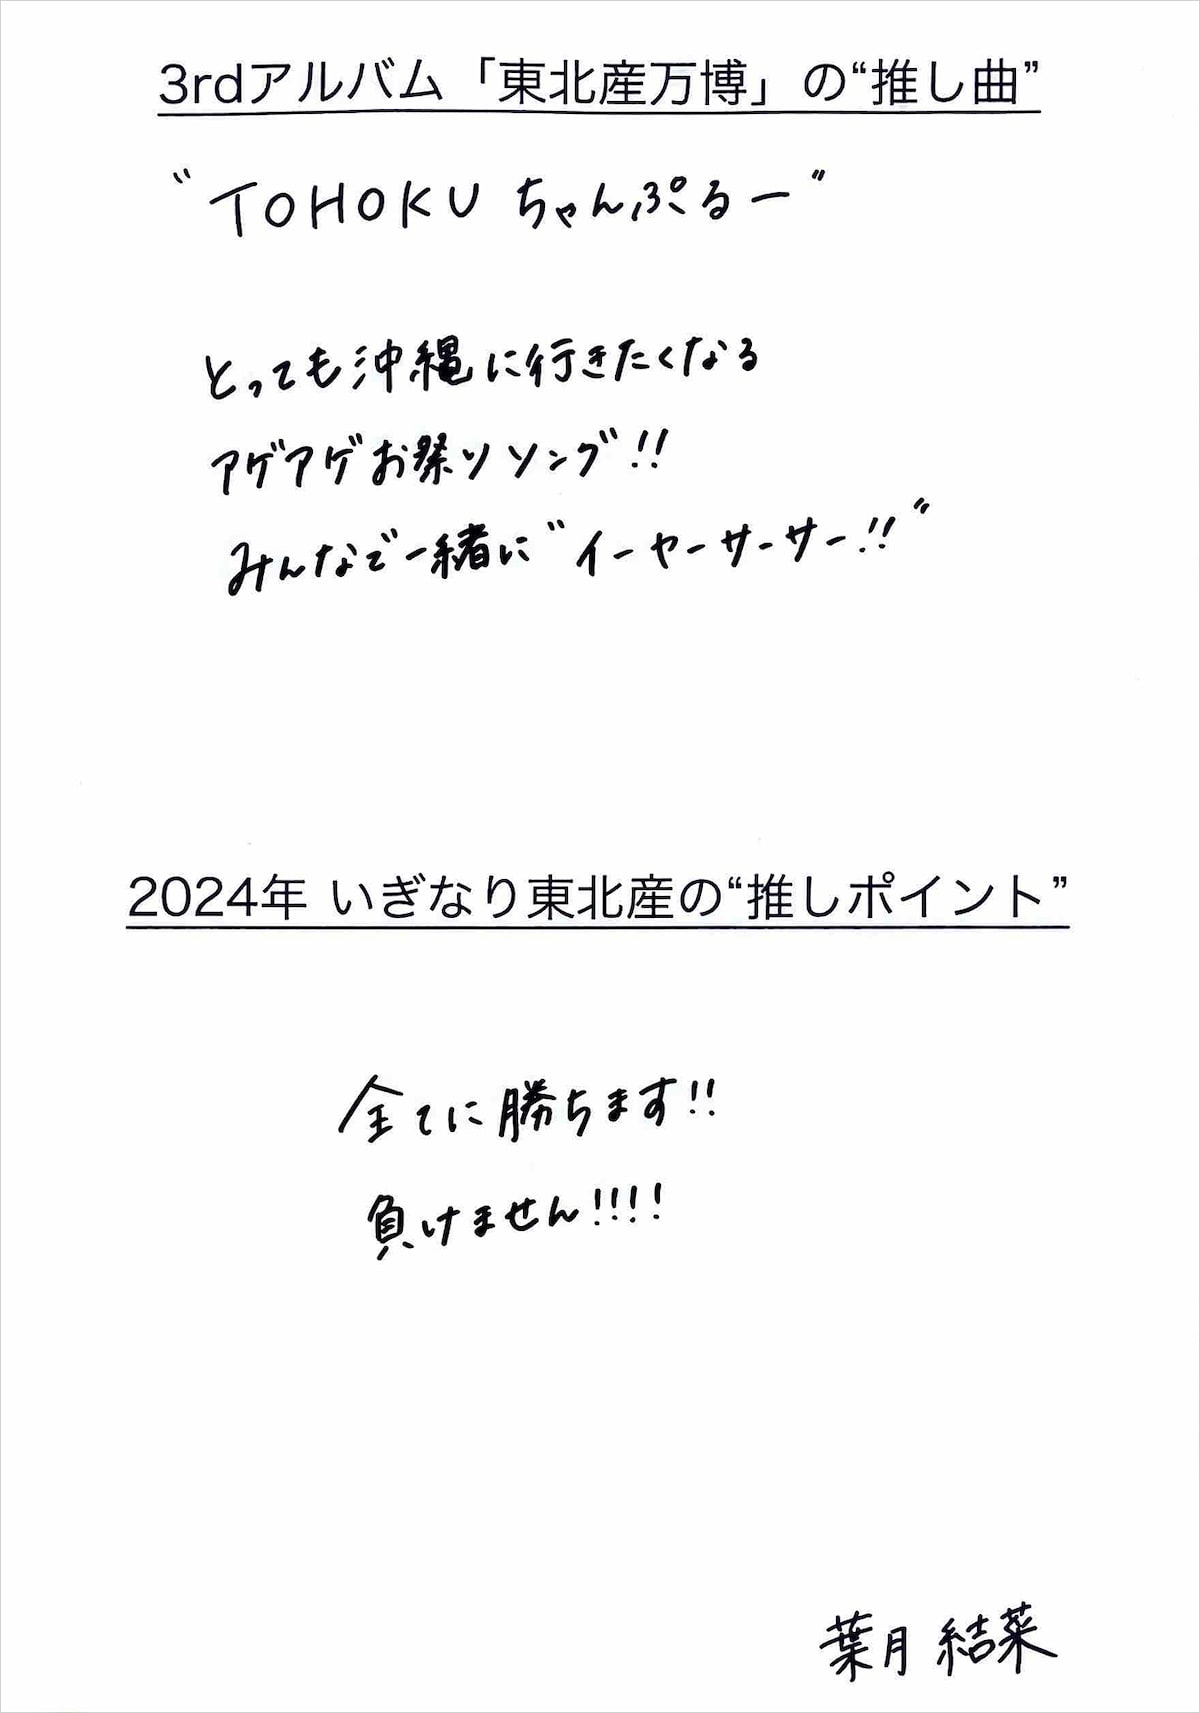 3rdアルバム「東北産万博」の“推し曲”
〝TOHOKU ちゃんぷるー〞
とっても沖縄に行きたくなる
アゲアゲお祭りソング!!
みんなで一緒に〝イーヤーサーサー!!〞
2024年 いぎなり東北産の“推しポイント”
全てに勝ちます!!
負けません!!!!
葉月 結菜